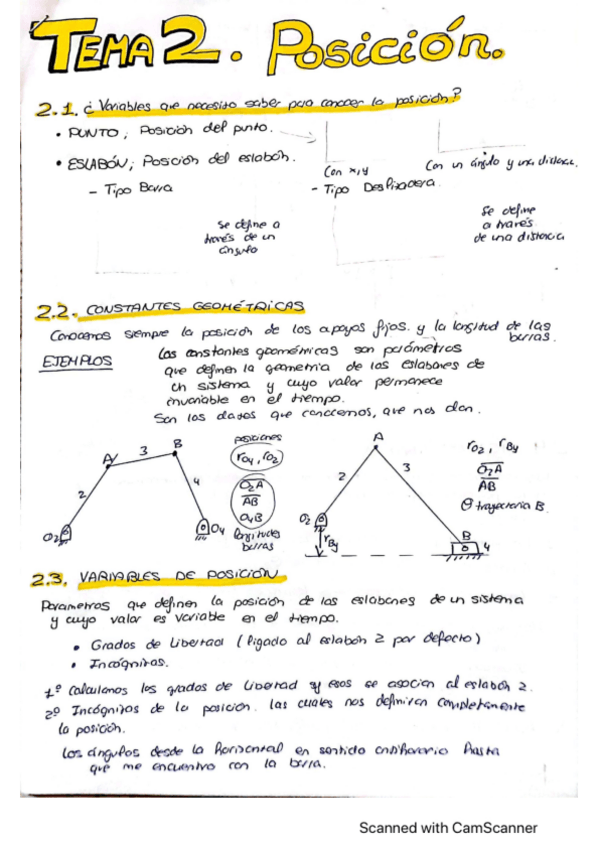 TEMA 2. Posición.
2.1. ¿Variables que necesito saber para conocer la posición?
• PUNTO; Posición del punto.
• ESLABÓN; Posición del eslabón.
Con x,y
Con un ángulo y una distancia.
- Tipo Barra
- Tipo Deslizadera.
Se define a
través de un
ángulo
Se define
a través
de una distancia
2.2. CONSTANTES GEOMÉTRICAS
Conocemos siempre la posición de los apoyos fijos. y la longitud de las
barras.
EJEMPLOS
Las constantes geométricas son parámetros
que definen la geometria de los eslabones de
un sistema y cuyo valor permanece
invariable en el tiempo.
Son los datos que conocemos, que nos dan.
A
3
B
2
4
O2
O4
posiciones
rO4, rO2
O2A
AB
O4B
longitudes
barras
A
2
3
O2
rBy
B
4
rO2, rBy
O2A
AB
θ trayectoria B
2.3. VARIABLES DE POSICIÓN
Parametros que definen la posición de los eslabones de un sistema
y cuyo valor es variable en el tiempo.
• Grados de Libertad (ligado al eslabón 2 por defecto)
• Incógnitas.
1º Calculamos los grados de libertad y esos se asocian al eslabón 2.
2º Incógnitas de la posición. las cuales nos definiran completamente
la posición.
Los ángulos desde la horizontal en sentido antihorario hasta
que me encuentro con la barra.
Scanned with CamScanner